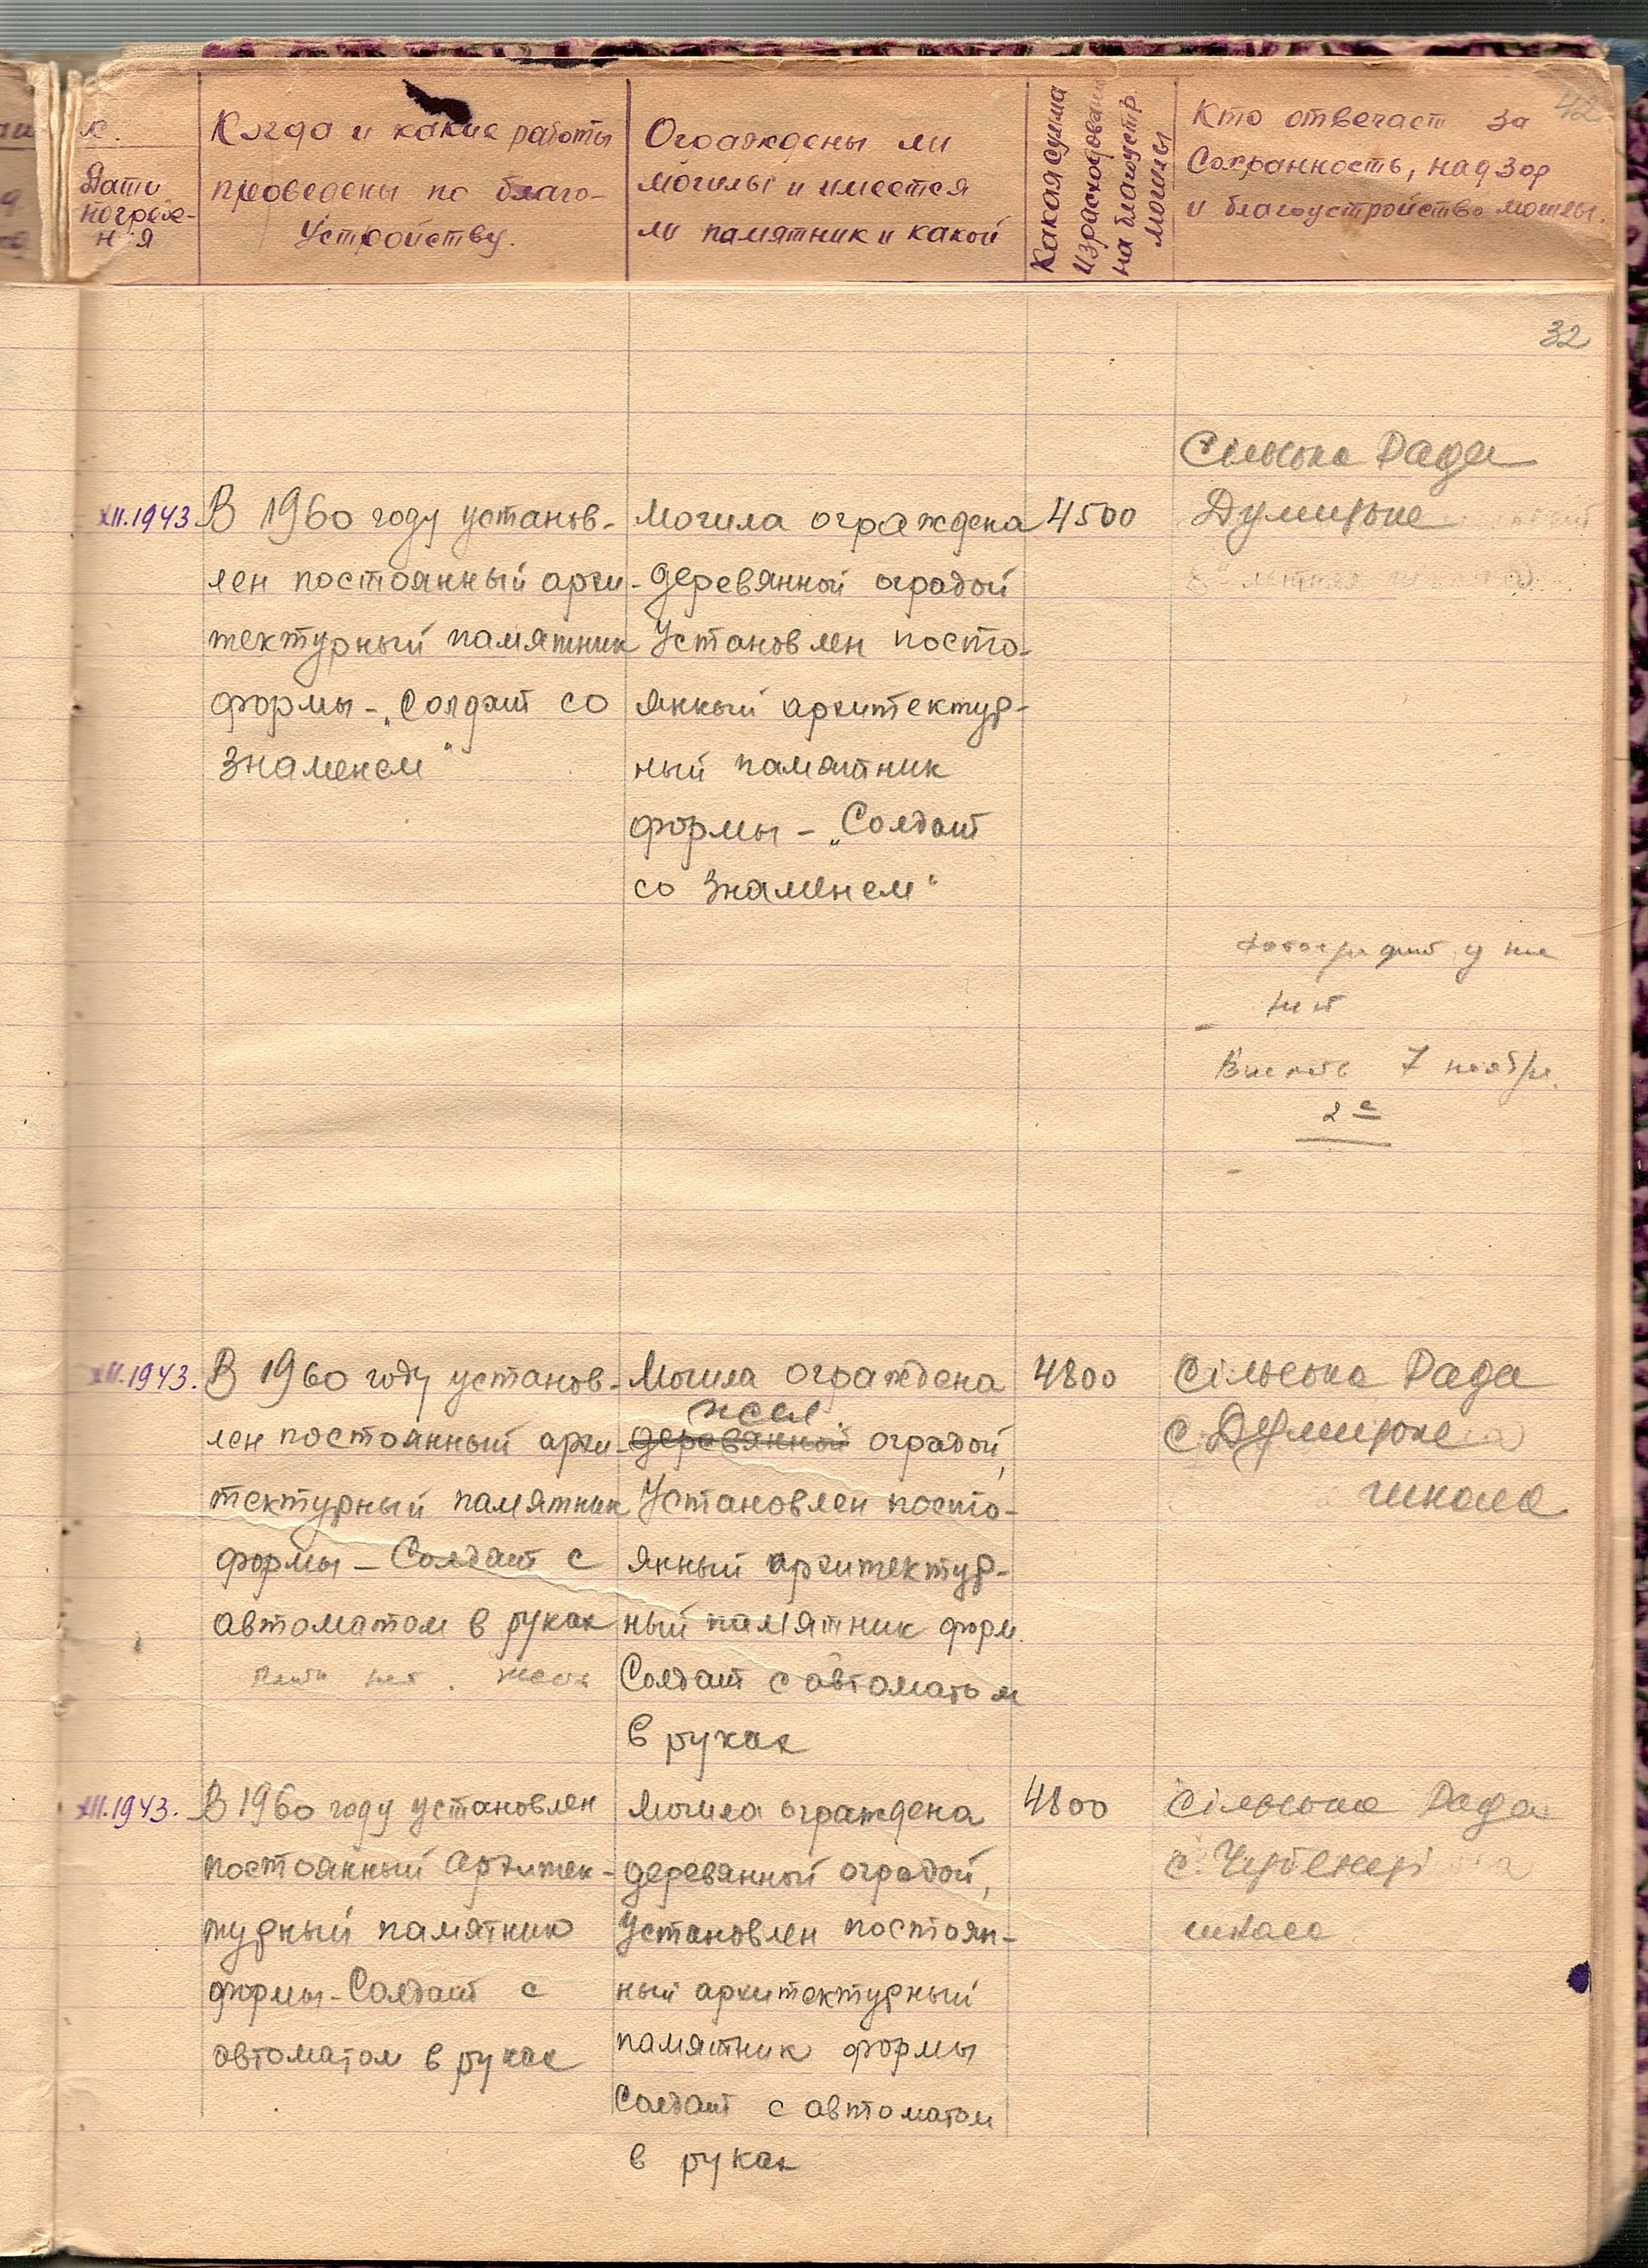 42
Дата
погребе-
ния
Когда и какие работы
проведены по благо-
устройству.
Ограждены ли
могилы и имеется
ли памятник и какой
Какая сумма
израсходована
на благоустр.
могилы
Кто отвечает за
сохранность, надзор
и благоустройство могилы.
32
XII.1943
В 1960 году установ-
лен постоянный архи-
тектурный памятник
формы - „Солдат со
знаменем"
Могила ограждена
деревянной оградой
Установлен посто-
янный архитектур-
ный памятник
формы - „Солдат
со знаменем"
4500
Сільська Рада
7 ноябр.
XII.1943.
В 1960 году установ-
лен постоянный архи-
тектурный памятник
формы - Солдат с
автоматом в руках
нет
Могила ограждена
жел.
деревянной оградой,
Установлен посто-
янный архитектур-
ный памятник форм.
Солдат с автоматом
в руках
4800
Сільська Рада
с.
школа
XII.1943.
В 1960 году установлен
постоянный архитек-
турный памятник
формы - Солдат с
автоматом в руках
Могила ограждена
деревянной оградой,
Установлен постоян-
ный архитектурный
памятник формы
Солдат с автоматом
в руках
4800
Сільська Рада
с.
школа